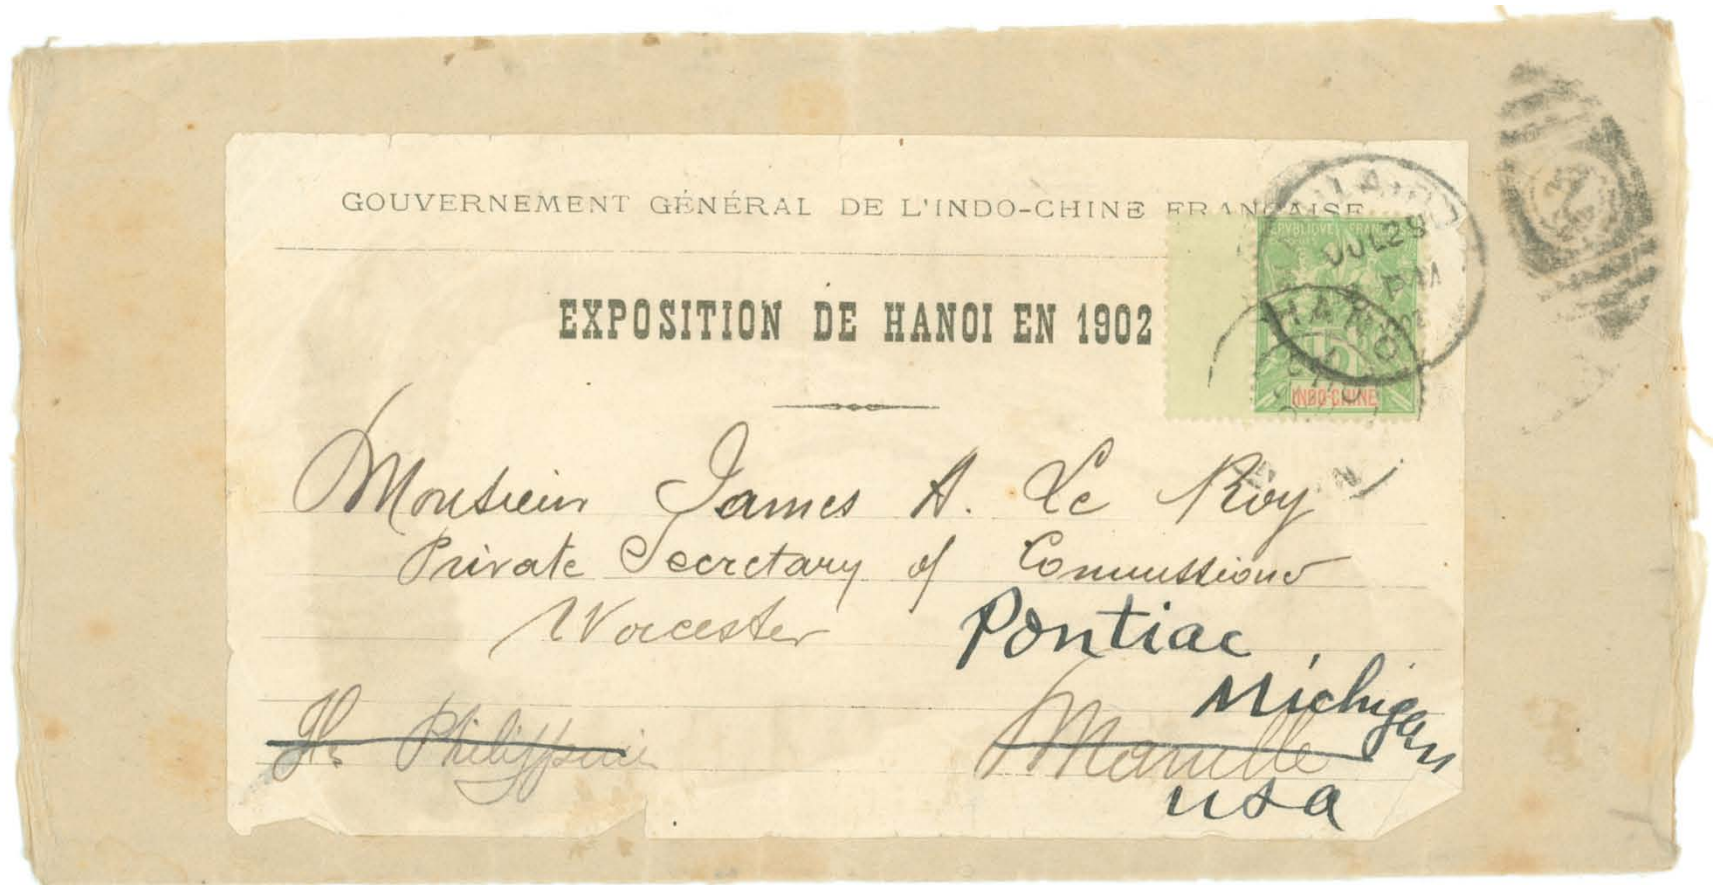 GOUVERNEMENT GÉNÉRAL DE L'INDO-CHINE FRANÇAISE
EXPOSITION DE HANOI EN 1902
RÉPUBLIQUE FRANÇAISE
JUL 29
PM
HANOI
INDO-CHINE
2
Monsieur James A. Le Roy
Private Secretary of Commissioner
Worcester
Pontiac
Michigan
Is. Philippine
Manille
USA